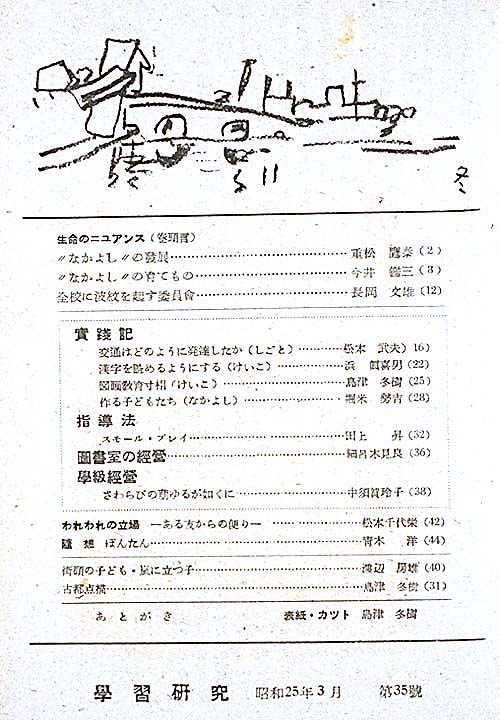 冬
生命のニユアンス（巻頭言）
〃なかよし〃の發展……重松 鷹泰（2）
〃なかよし〃の育てもの……今井 鑑三（8）
全校に波紋を起す委員會……長岡 文雄（12）
實践記
交通はどのように発達したか（しごと）……松本 武夫）16）
漢字を読めるようにする（けいこ）……浜 眞喜男（22）
図画教育寸描（けいこ）……島津 冬樹（25）
作る子どもたち（なかよし）……堀米 勞吉（28）
指導法
スモール・プレイ……田上 昇（32）
圖書室の經營……細呂木見良（36）
學級經營
さわらびの萠ゆるが如くに……中須賀玲子（38）
われわれの立場 ―ある友からの便り―……松本千代栄（42）
隨想 ぼんたん……青木 洋（44）
街頭の子ども・嵐に立つ子……渡辺 房雄（40）
古都点描……島津 冬樹（31）
あとがき 表紙・カツト 島津 冬樹
學習研究 昭和25年3月 第35號